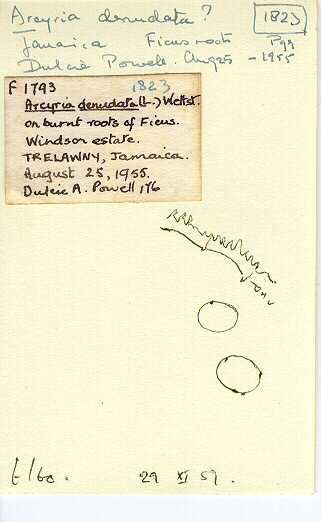 Arcyria denudata?
1823
Jamaica Ficus roots
Dulcie Powell. Aug 25 - 1955
F 1793 1823
Arcyria denudata (L.) Wettst.
on burnt roots of Ficus.
Windsor estate.
TRELAWNY, Jamaica.
August 25, 1955.
Dulcie A. Powell 176
29 XI 59.